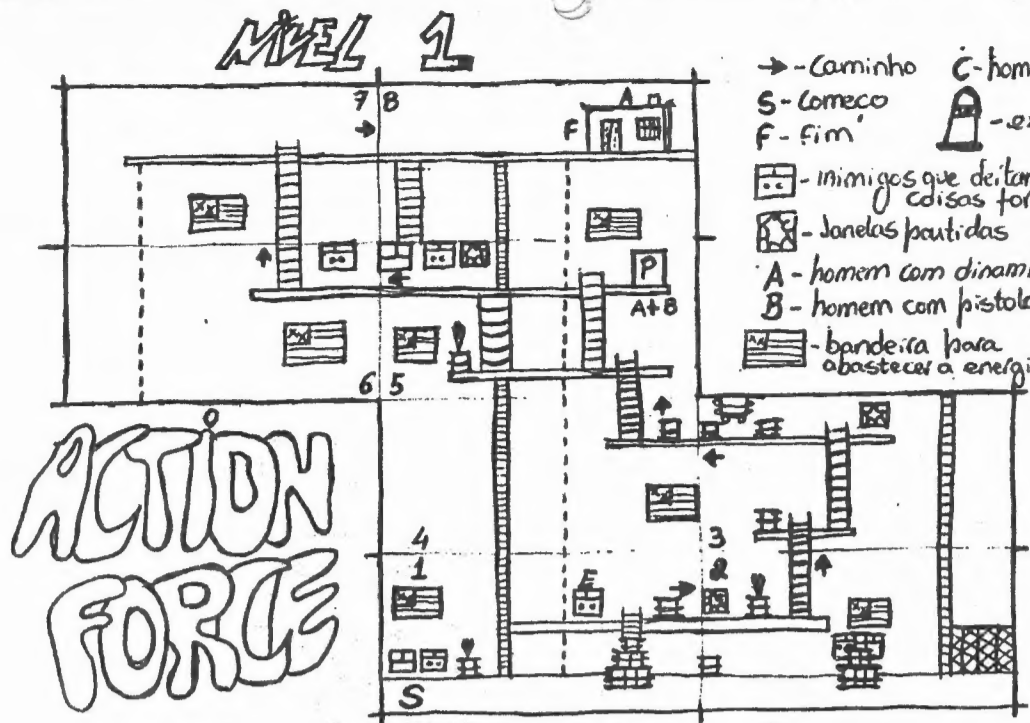 NÍVEL 1
→ - Caminho
S - Começo
F - fim
C - hom
- inimigos que deitam
coisas for
- Janelas partidas
A - homem com dinam
B - homem com pistola
- bandeira para
abastecer a energi
7 8
F
A
P
A+B
6 5
ACTION
FORCE
4
1
3
2
E
S